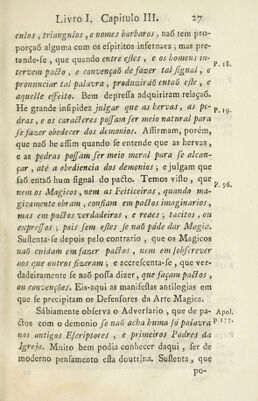 Livro I. Capitulo III. 27
culos, triangulos, e nomes barbaros, naõ tem pro-
porçaõ alguma com os eſpiritos infernaes; mas pre-
tende-ſe, que quando entre eſtes, e os homens in-
tervem pacto, e convençaõ de fazer tal ſignal, e P. 18.
pronunciar tal palavra, produziráõ entaõ eſte, e
aquelle effeito. Bem depreſſa adquiriram relaçaõ.
He grande inſipidez julgar que as hervas, as pe-
dras, e os caracteres poſſam ſer meio natural para P. 19.
ſe fazer obedecer dos demonios. Affirmam, porém,
que naõ he aſſim quando ſe entende que as hervas,
e as pedras poſſam ſer meio moral para ſe alcan-
çar, até a obediencia dos demonios; e julgam que
ſaõ entaõ hum ſignal do pacto. Temos viſto, que
nem os Magicos, nem as Feiticeiras, quando ma- P. 96.
gicamente obram, confiam em pactos imaginarios,
mas em pactos verdadeiros, e reaes; tacitos, ou
expreſſos, pois ſem eſtes ſe naõ póde dar Magia.
Suſtenta-se depois pelo contrario, que os Magicos
naõ cuidam em fazer pactos, nem em ſobſcrever
aos que outros fizeram; e accreſcenta-ſe, que ver-
dadeiramente ſe naõ poſſa dizer, que façam pactos,
ou convenções. Eis-aqui as manifeſtas antilogias em
que ſe precipitam os Defenſores da Arte Magica.
Sábiamente obſerva o Adverſario, que de pa- Apol.
ctos com o demonio ſe naõ acha huma ſó palavra P. 177.
nos antigos Eſcriptores, e primeiros Padres da
Igreja. Muito bem podia conhecer daqui, ſer de
moderno penſamento eſta doutrina. Suſtenta, que
po-